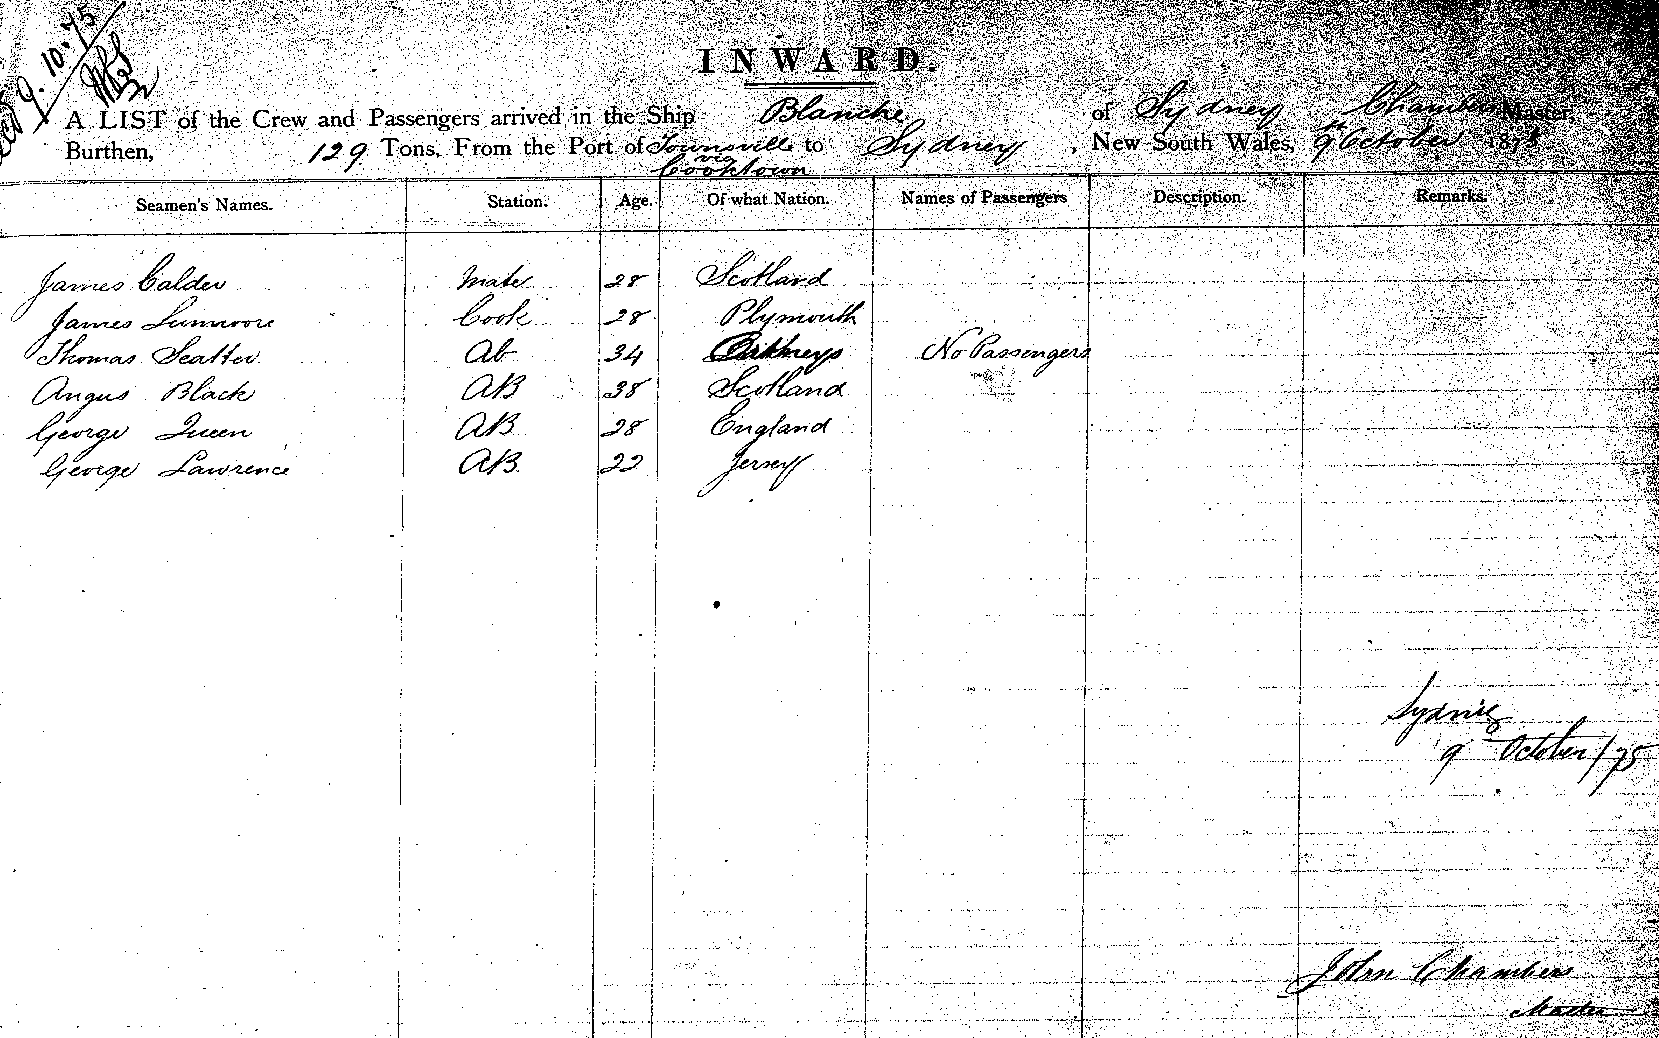 9.10.75
INWARD.
A LIST of the Crew and Passengers arrived in the Ship Blanche of Sydney Chambers Master,
Burthen, 129 Tons, From the Port of Townsville to Sydney, New South Wales, 9th October 1875
via
Cooktown
Seamen's Names. Station. Age. Of what Nation. Names of Passengers Description. Remarks.
James Calder Mate 28 Scotland
James Cook 28 Plymouth
Thomas Seatter Ab 34 Orkneys No Passengers
Angus Black AB 38 Scotland
George Queen AB 28 England
George Lawrence AB 22 Jersey
Sydney
9 October /75
John Chambers
Master